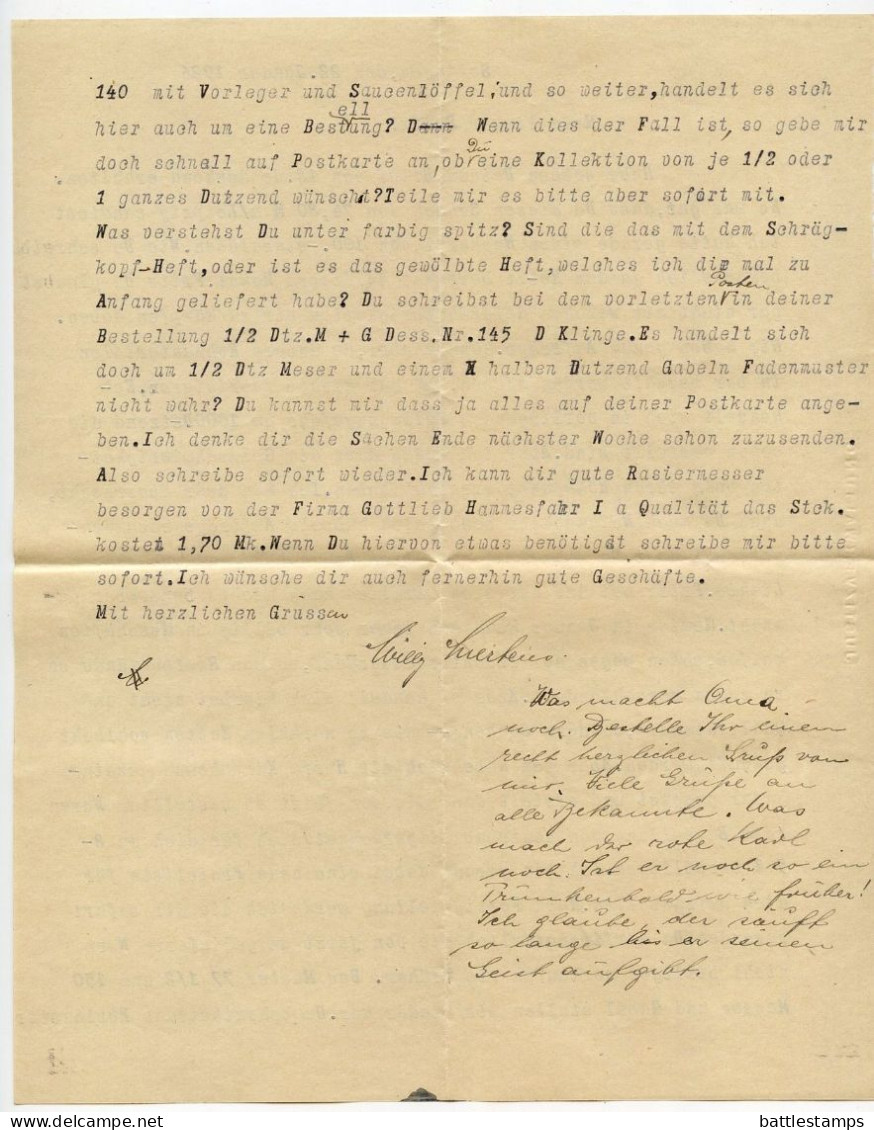 140 mit Vorleger und Saucenlöffel, und so weiter,handelt es sich
hier auch um eine Bestellung? Dann Wenn dies der Fall ist, so gebe mir
doch schnell auf Postkarte an, ob Du eine Kollektion von je 1/2 oder
1 ganzes Dutzend wünscht?Teile mir es bitte aber sofort mit.
Was verstehst Du unter farbig spitz? Sind die das mit dem Schräg-
kopf-Heft,oder ist es das gewölbte Heft,welches ich die mal zu
Anfang geliefert habe? Du schreibst bei dem vorletzten Posten in deiner
Bestellung 1/2 Dtz.M + G Dess.Nr.145 D Klinge.Es handelt sich
doch um 1/2 Dtz Meser und einem halben Dutzend Gabeln Fadenmuster
nicht wahr? Du kannst mir dass ja alles auf deiner Postkarte ange-
ben.Ich denke dir die Sachen Ende nächster Woche schon zuzusenden.
Also schreibe sofort wieder.Ich kann dir gute Rasiermesser
besorgen von der Firma Gottlieb Hammesfahr I a Qualität das Stck.
kostet 1,70 Mk.Wenn Du hiervon etwas benötigst schreibe mir bitte
sofort.Ich wünsche dir auch fernerhin gute Geschäfte.
Mit herzlichen Grussen
Willy Mertens.
Was macht Oma
noch. Bestelle Ihr einem
recht herzlichen Gruß von
mir. Viele Grüße an
alle Bekannte. Was
mach der rote Karl
noch. Ist er noch so ein
Trunkenbold wie früher!
Ich glaube, der säuft
so lange bis er seinen
Geist aufgibt.
battlestamps
battlestamps.com